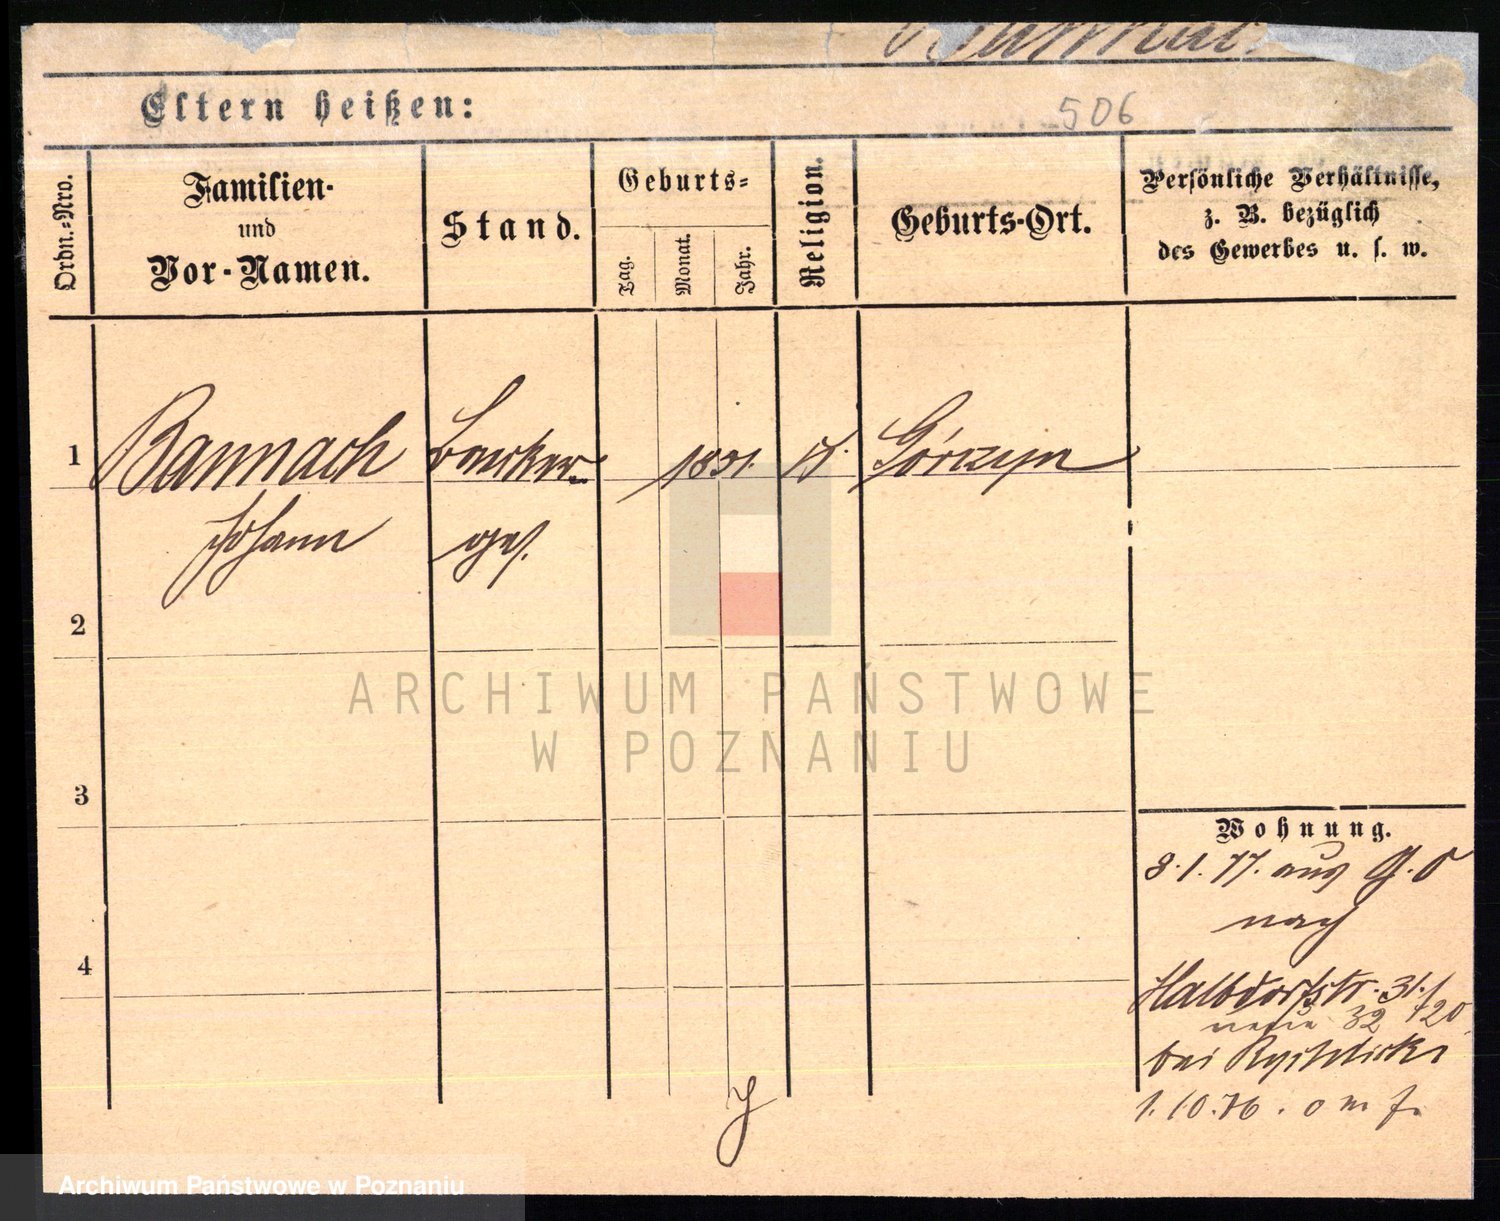 Bannach
Eltern heißen:
506
Ordn.=Nro.
Familien-
und
Vor-Namen.
Stand.
Geburts=
Tag.
Monat.
Jahr.
Religion.
Geburts-Ort.
Persönliche Verhältnisse,
z. B. bezüglich
des Gewerbes u. s. w.
1
Bannach
Johann
ges.
Górczyn
2
3
4
Wohnung.
8.1.77. aus G.O
nach
Halbdorfstr. 31.
32
bei
1.10.76.
ARCHIWUM PAŃSTWOWE
W POZNANIU
Archiwum Państwowe w Poznaniu